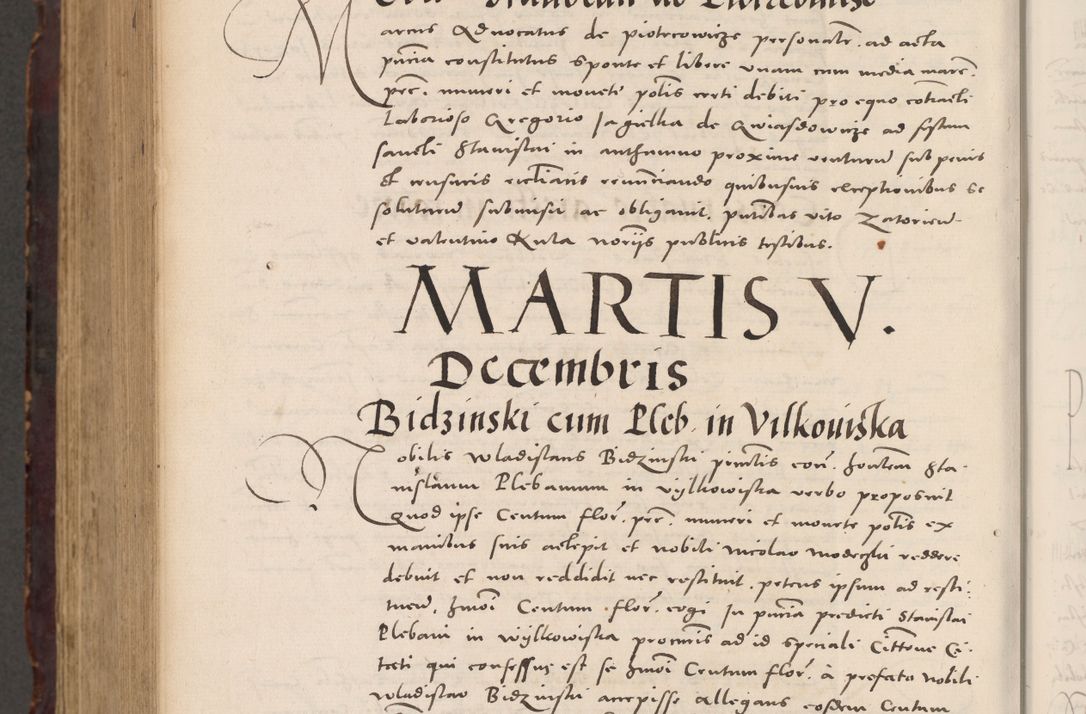 Marcus Advocatus de piotrcowicze personalr. ad acta
pñtia constitutus sponte et libere unam cum media marc.
pec. numeri et monete polis certi debiti pro equo cotracti
Laborioso Gregorio Jagielka de Gwiasdowicze ad festum
sancti Stanislai in authumno proxime venturu sub penis
et censuris ecclianis renunciando quibusuis exceptionibus se
soluturu submisit ac obligauit. pñtibus vito Zatorien
et valentino Kula noriis publicis testibus.
MARTIS V.
Decembris
Bidzinski cum Pleb. in Vilkouiska
Nobilis wladislaus Bidzinski principlis cor. hontem Sta-
nislaum Plebanum in vylkowiska verbo proposuit
Quod ipse Centum flor. pec. numeri et monete polis ex
manibus suis accepit et nobili nicolao modezki reddere
debuit et non reddidit nec restituit. petens ipsum ad resti:
tuend. hmoi Centum flor. cogi In pñtia predicti Stanislai
Plebani in wylkowiska procuris ad id speciali Cittone Ci-
tati qui confessus est se hmoi Centum flor. à prefato nobili
wladislao Bidzinski accepisse allegans eosdem Centum